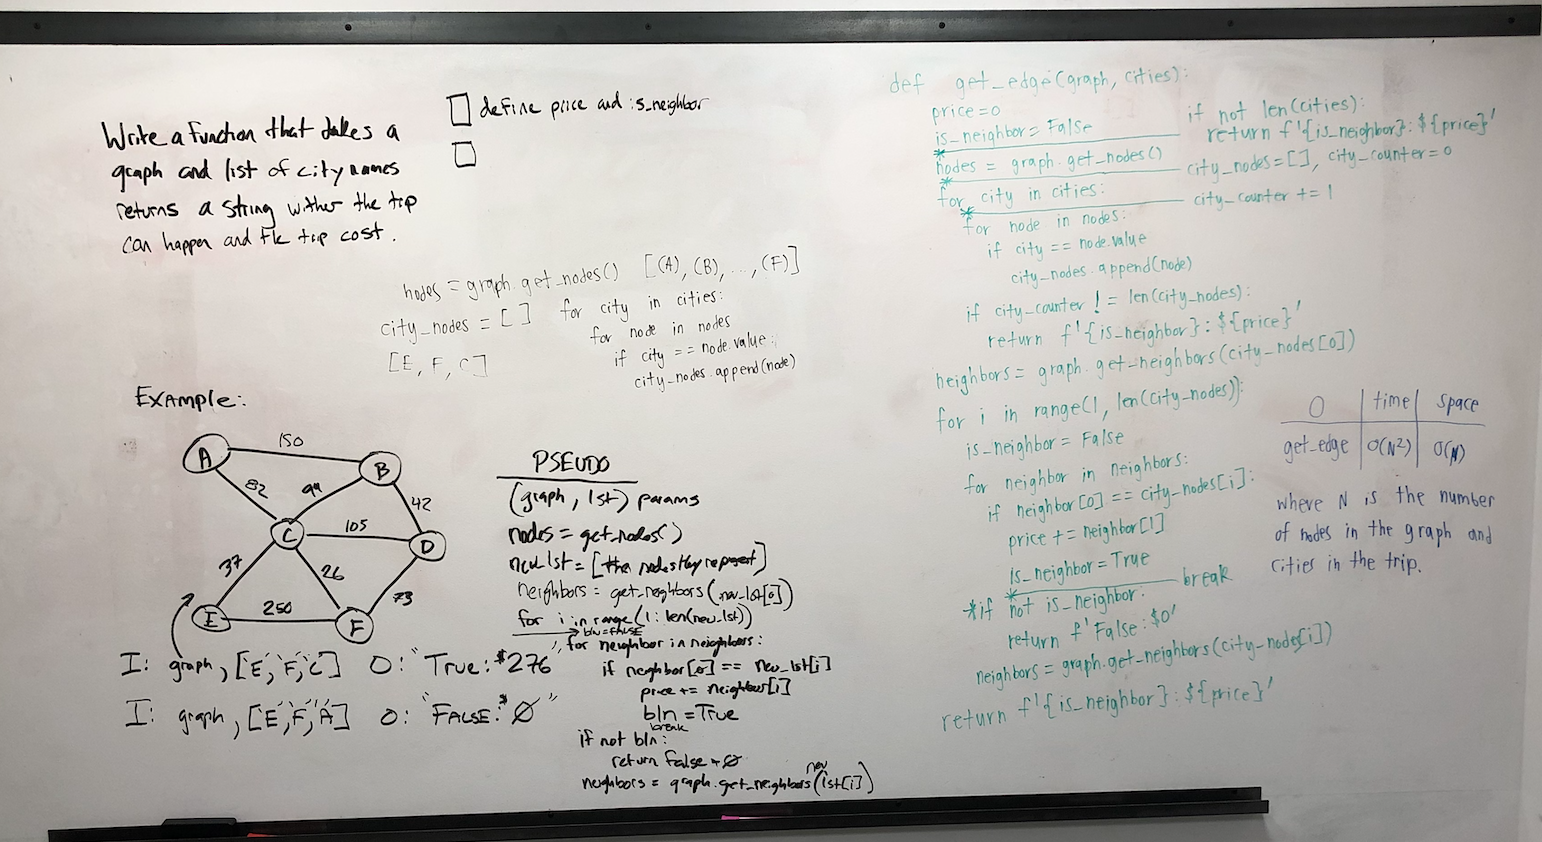 Write a function that takes a
graph and list of city names
returns a string wither the trip
can happen and the trip cost.
define price and is_neighbor
nodes = graph.get_nodes() [(A), (B), ..., (F)]
city_nodes = [ ] for city in cities:
for node in nodes
[E, F, C] if city == node.value:
city_nodes.append(node)
Example:
A
150
B
82
99
42
C
105
D
37
26
73
E
250
F
I: graph, ['E', 'F', 'C'] O: "True: $276"
I: graph, ['E', 'F', 'A'] O: "FALSE: $0"
PSEUDO
(graph, lst) params
nodes = get_nodes()
new_lst = [the nodes they represent]
neighbors = get_neighbors(new_lst[0])
for i in range(1: len(new_lst))
bln = FALSE
for neighbor in neighbors:
if neighbor[0] == new_lst[i]
price += neighbor[1]
bln = True
break
if not bln:
return false + 0
neighbors = graph.get_neighbors(new lst[i])
def get_edge(graph, cities):
price = 0
is_neighbor = False
if not len(cities):
return f'{is_neighbor}: ${price}'
* nodes = graph.get_nodes()
city_nodes = [], city_counter = 0
* for city in cities:
city_counter += 1
* for node in nodes:
if city == node.value
city_nodes.append(node)
if city_counter != len(city_nodes):
return f'{is_neighbor}: ${price}'
neighbors = graph.get_neighbors(city_nodes[0])
for i in range(1, len(city_nodes)):
is_neighbor = False
for neighbor in neighbors:
if neighbor[0] == city_nodes[i]:
price += neighbor[1]
is_neighbor = True
* break
* if not is_neighbor:
return f'False: $0'
neighbors = graph.get_neighbors(city_nodes[i])
return f'{is_neighbor}: ${price}'
O time space
get_edge O(N²) O(N)
where N is the number
of nodes in the graph and
cities in the trip.